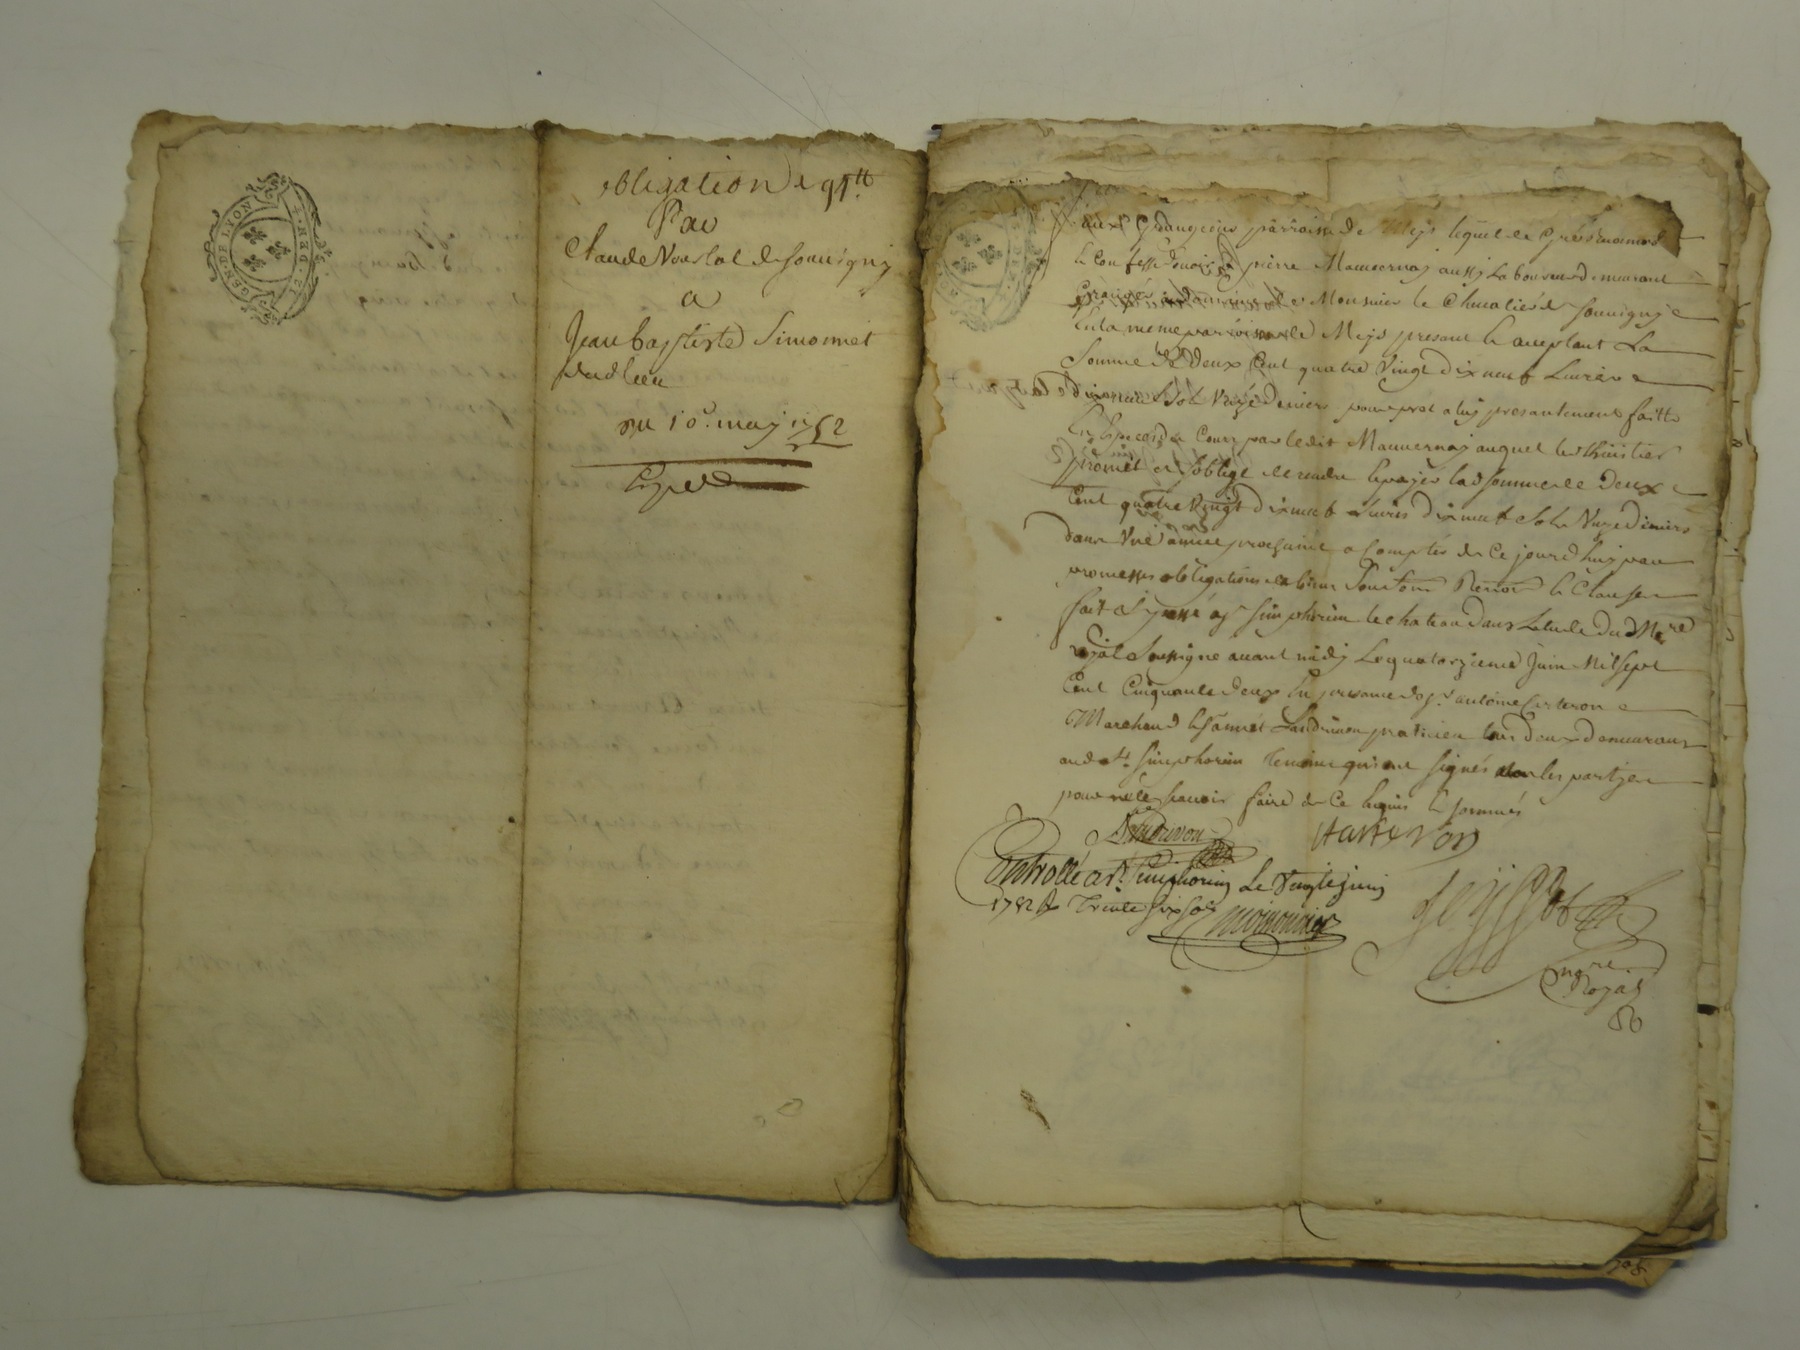 GEN. DE LYON
12. DEN. 4.
obligation de 95tt
Par
Claude de Souvigny
a
Jean baptiste Simonnet
dudlieu
du 10e. may 1752
Exped
parroisse de Meys lequel de gré
le confesse devoir a pierre Mauvernay aussy Laboureur demeurant
Monsieur le Chevalier de Souvigny
en la meme parroisse de Meys present & acceptant La
Somme de Deux Cent quatre Vingt Dix neuf Livres
dixneuf Sols Unze Deniers pour pret a luy presentement faitte
En Especes de Cours par ledit Mauvernay auquel
promet et s'oblige de rendre & payer lad Somme de Deux
Cent quatre Vingt Dix neuf Livres dixneuf Sols Unze Deniers
dans Une année prochaine a Compter de Ce jourd'huy par
promesses obligations de biens Soumissions Renon & Clauses
fait & passé a St Simphorien le chateau Dans Letude du Nre
royal Soussigné avant midy Le quatorzieme Juin Mil Sept
Cent Cinquante deux En presence de sr. antoine Carteron
Marchand & Landrivon praticien tous deux demeurant
aud St. Simphorien temoins qui ont signés non les partyes
pour ne le scavoir faire de Ce Enquis & sommés
Landrivon
Carteron
Controllé a St. Simphorien Le Vingt Juin
1752 R Trente six sols
nore
Royal